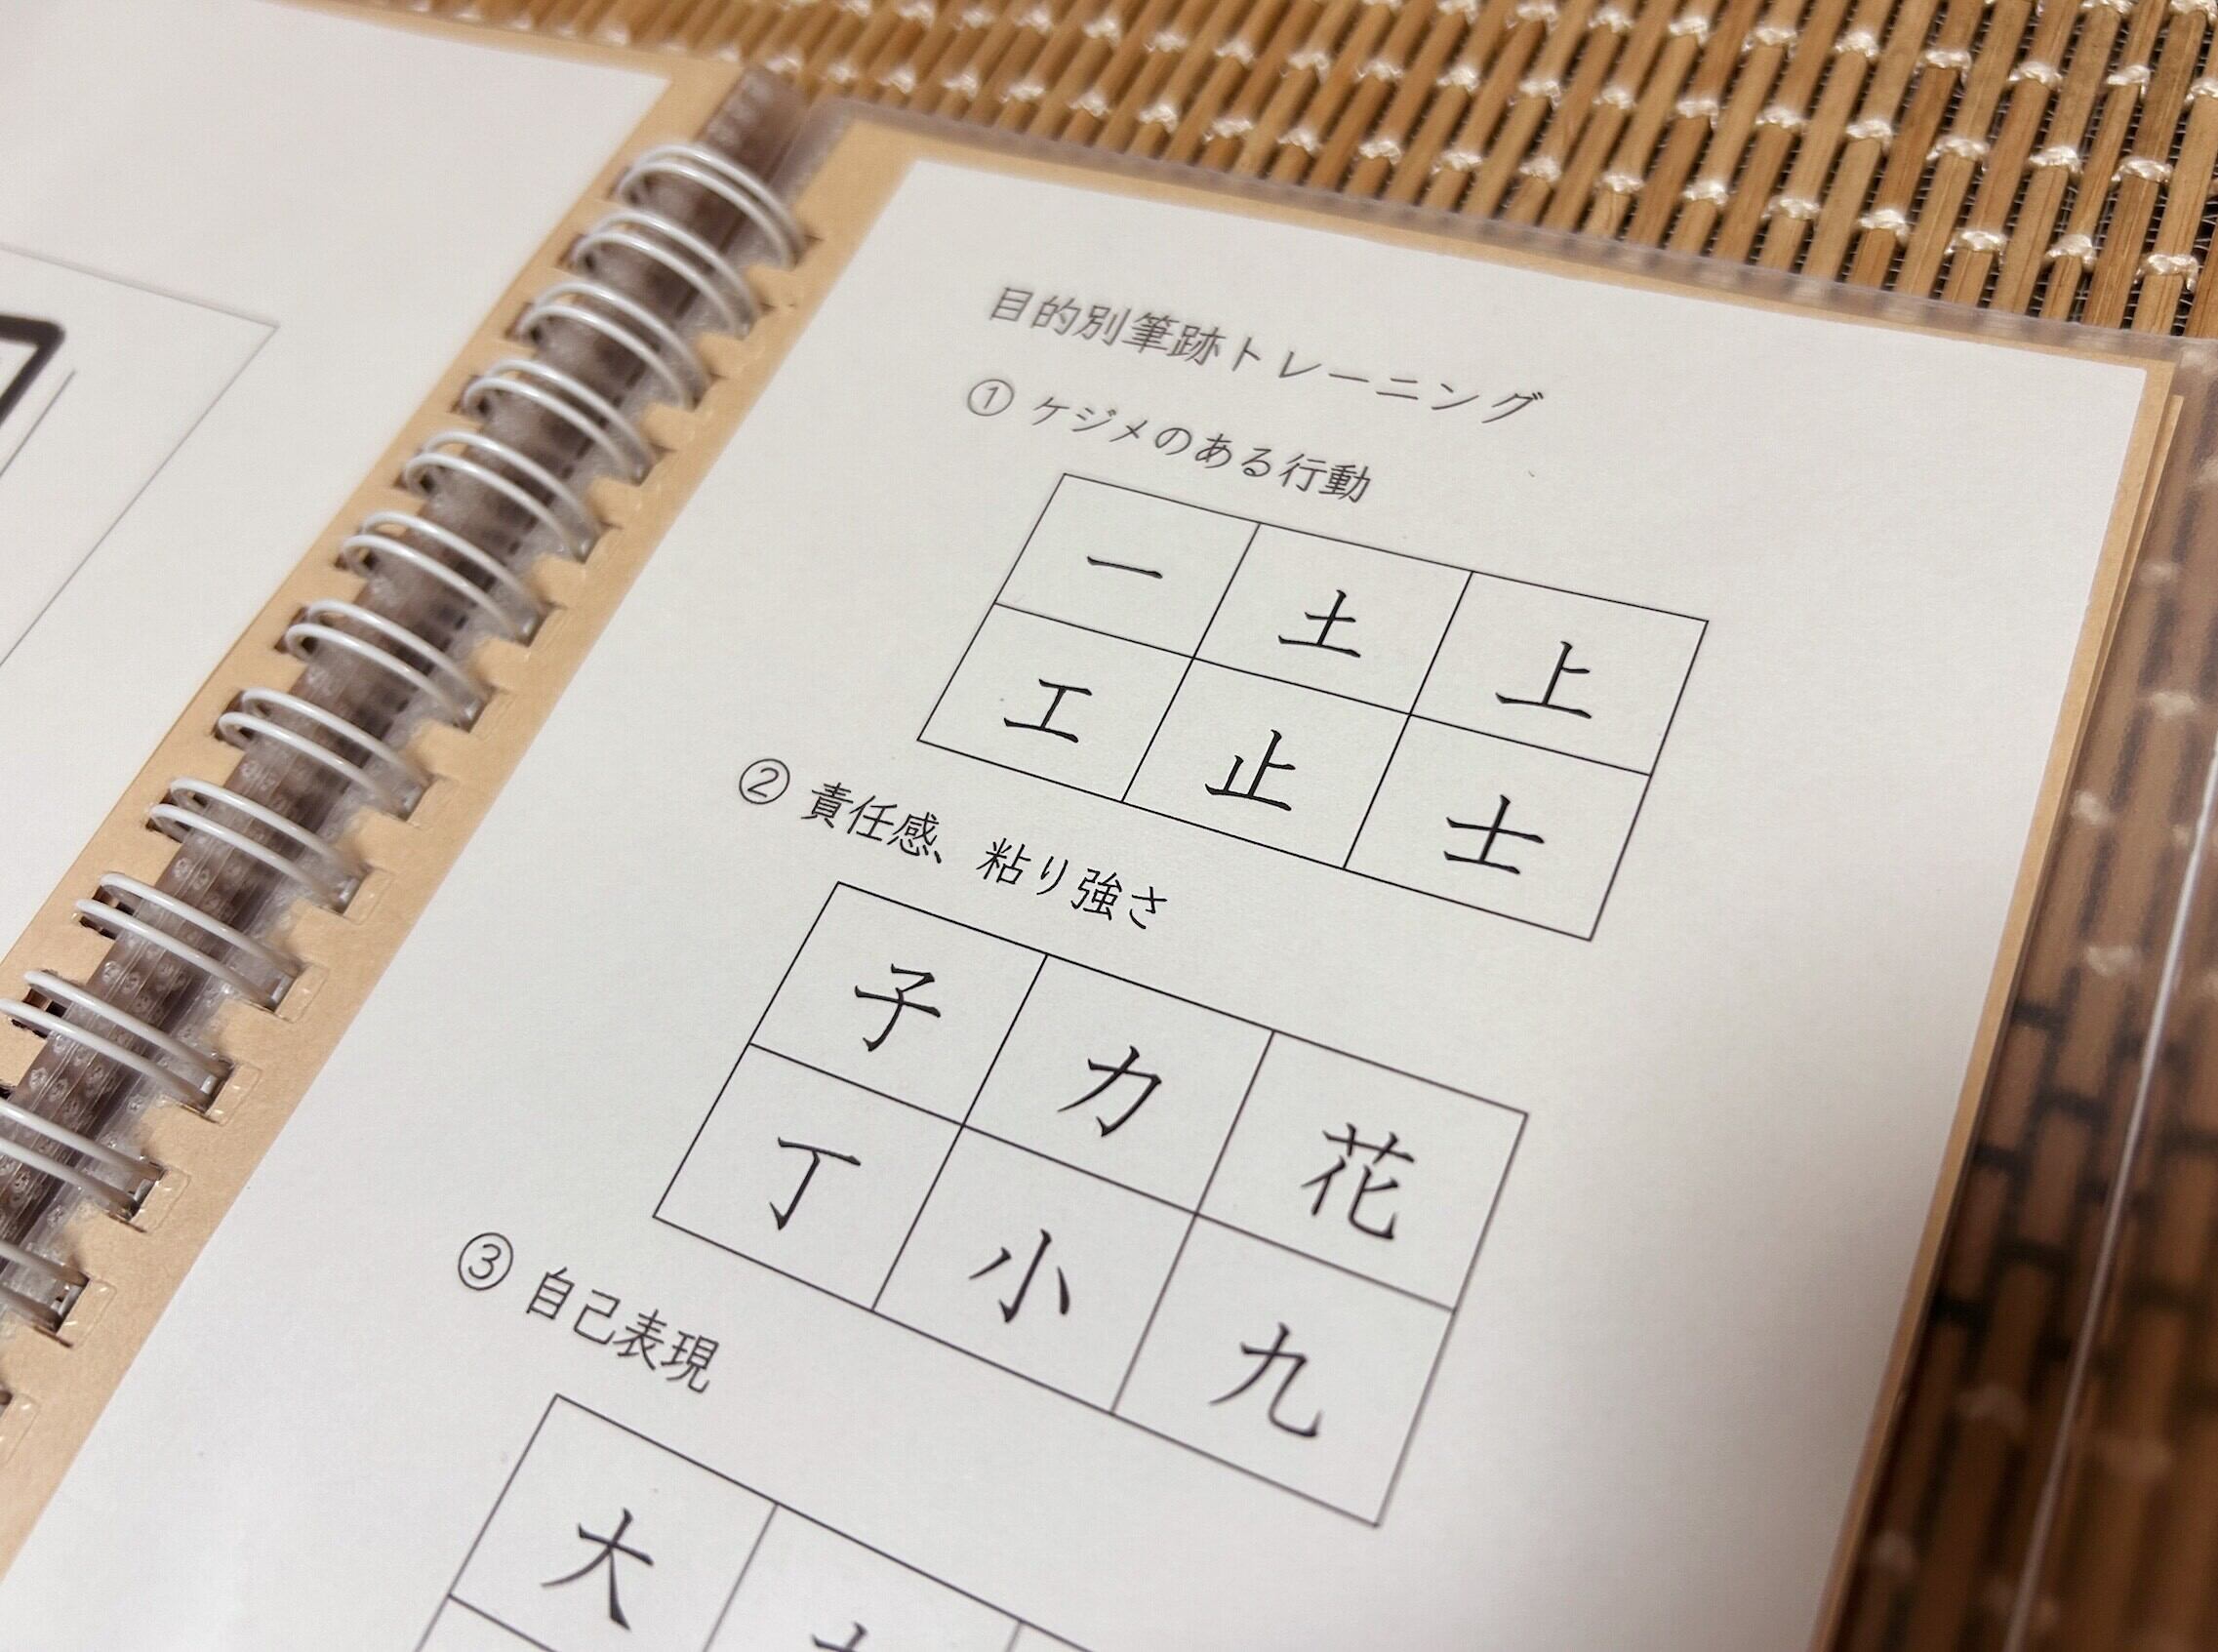 目的別筆跡トレーニング
① ケジメのある行動
一 土 上
工 止 士
② 責任感、粘り強さ
子 力 花
丁 小 九
③ 自己表現
大